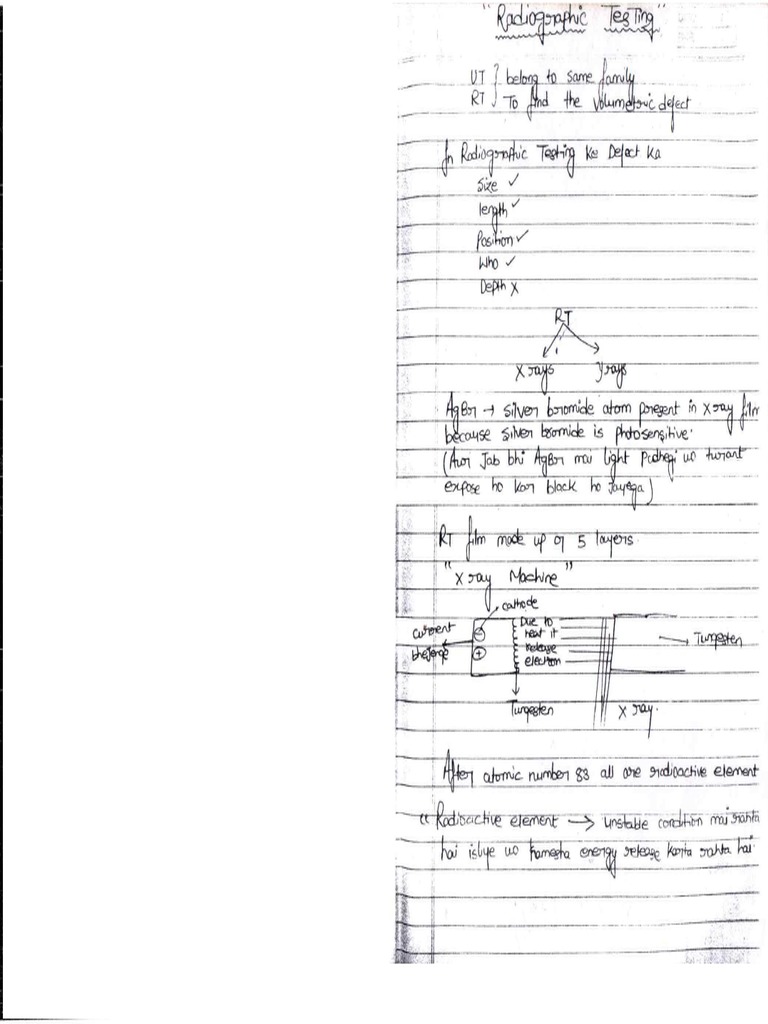 "Radiographic Testing"
UT } belong to same family
RT } To find the volumetric defect
In Radiographic Testing Ke Defect Ka
Size ✓
length ✓
Position ✓
Who ✓
Depth X
RT
X rays γ rays
AgBr → silver bromide atom present in X ray film
because silver bromide is photosensitive.
(Aur Jab bhi AgBr mai light padhegi uo turant
expose ho kar black ho jayega)
RT film made up of 5 layers.
"X ray Machine"
cathode
current
bhejenge
⊖
⊕
Due to
heat it
release
electron
Tungesten
Tungesten
X ray.
After atomic number 83 all are radioactive element
"Radioactive element → unstable condition mai rahta
hai isliye uo hamesha energy release karta rahta hai.